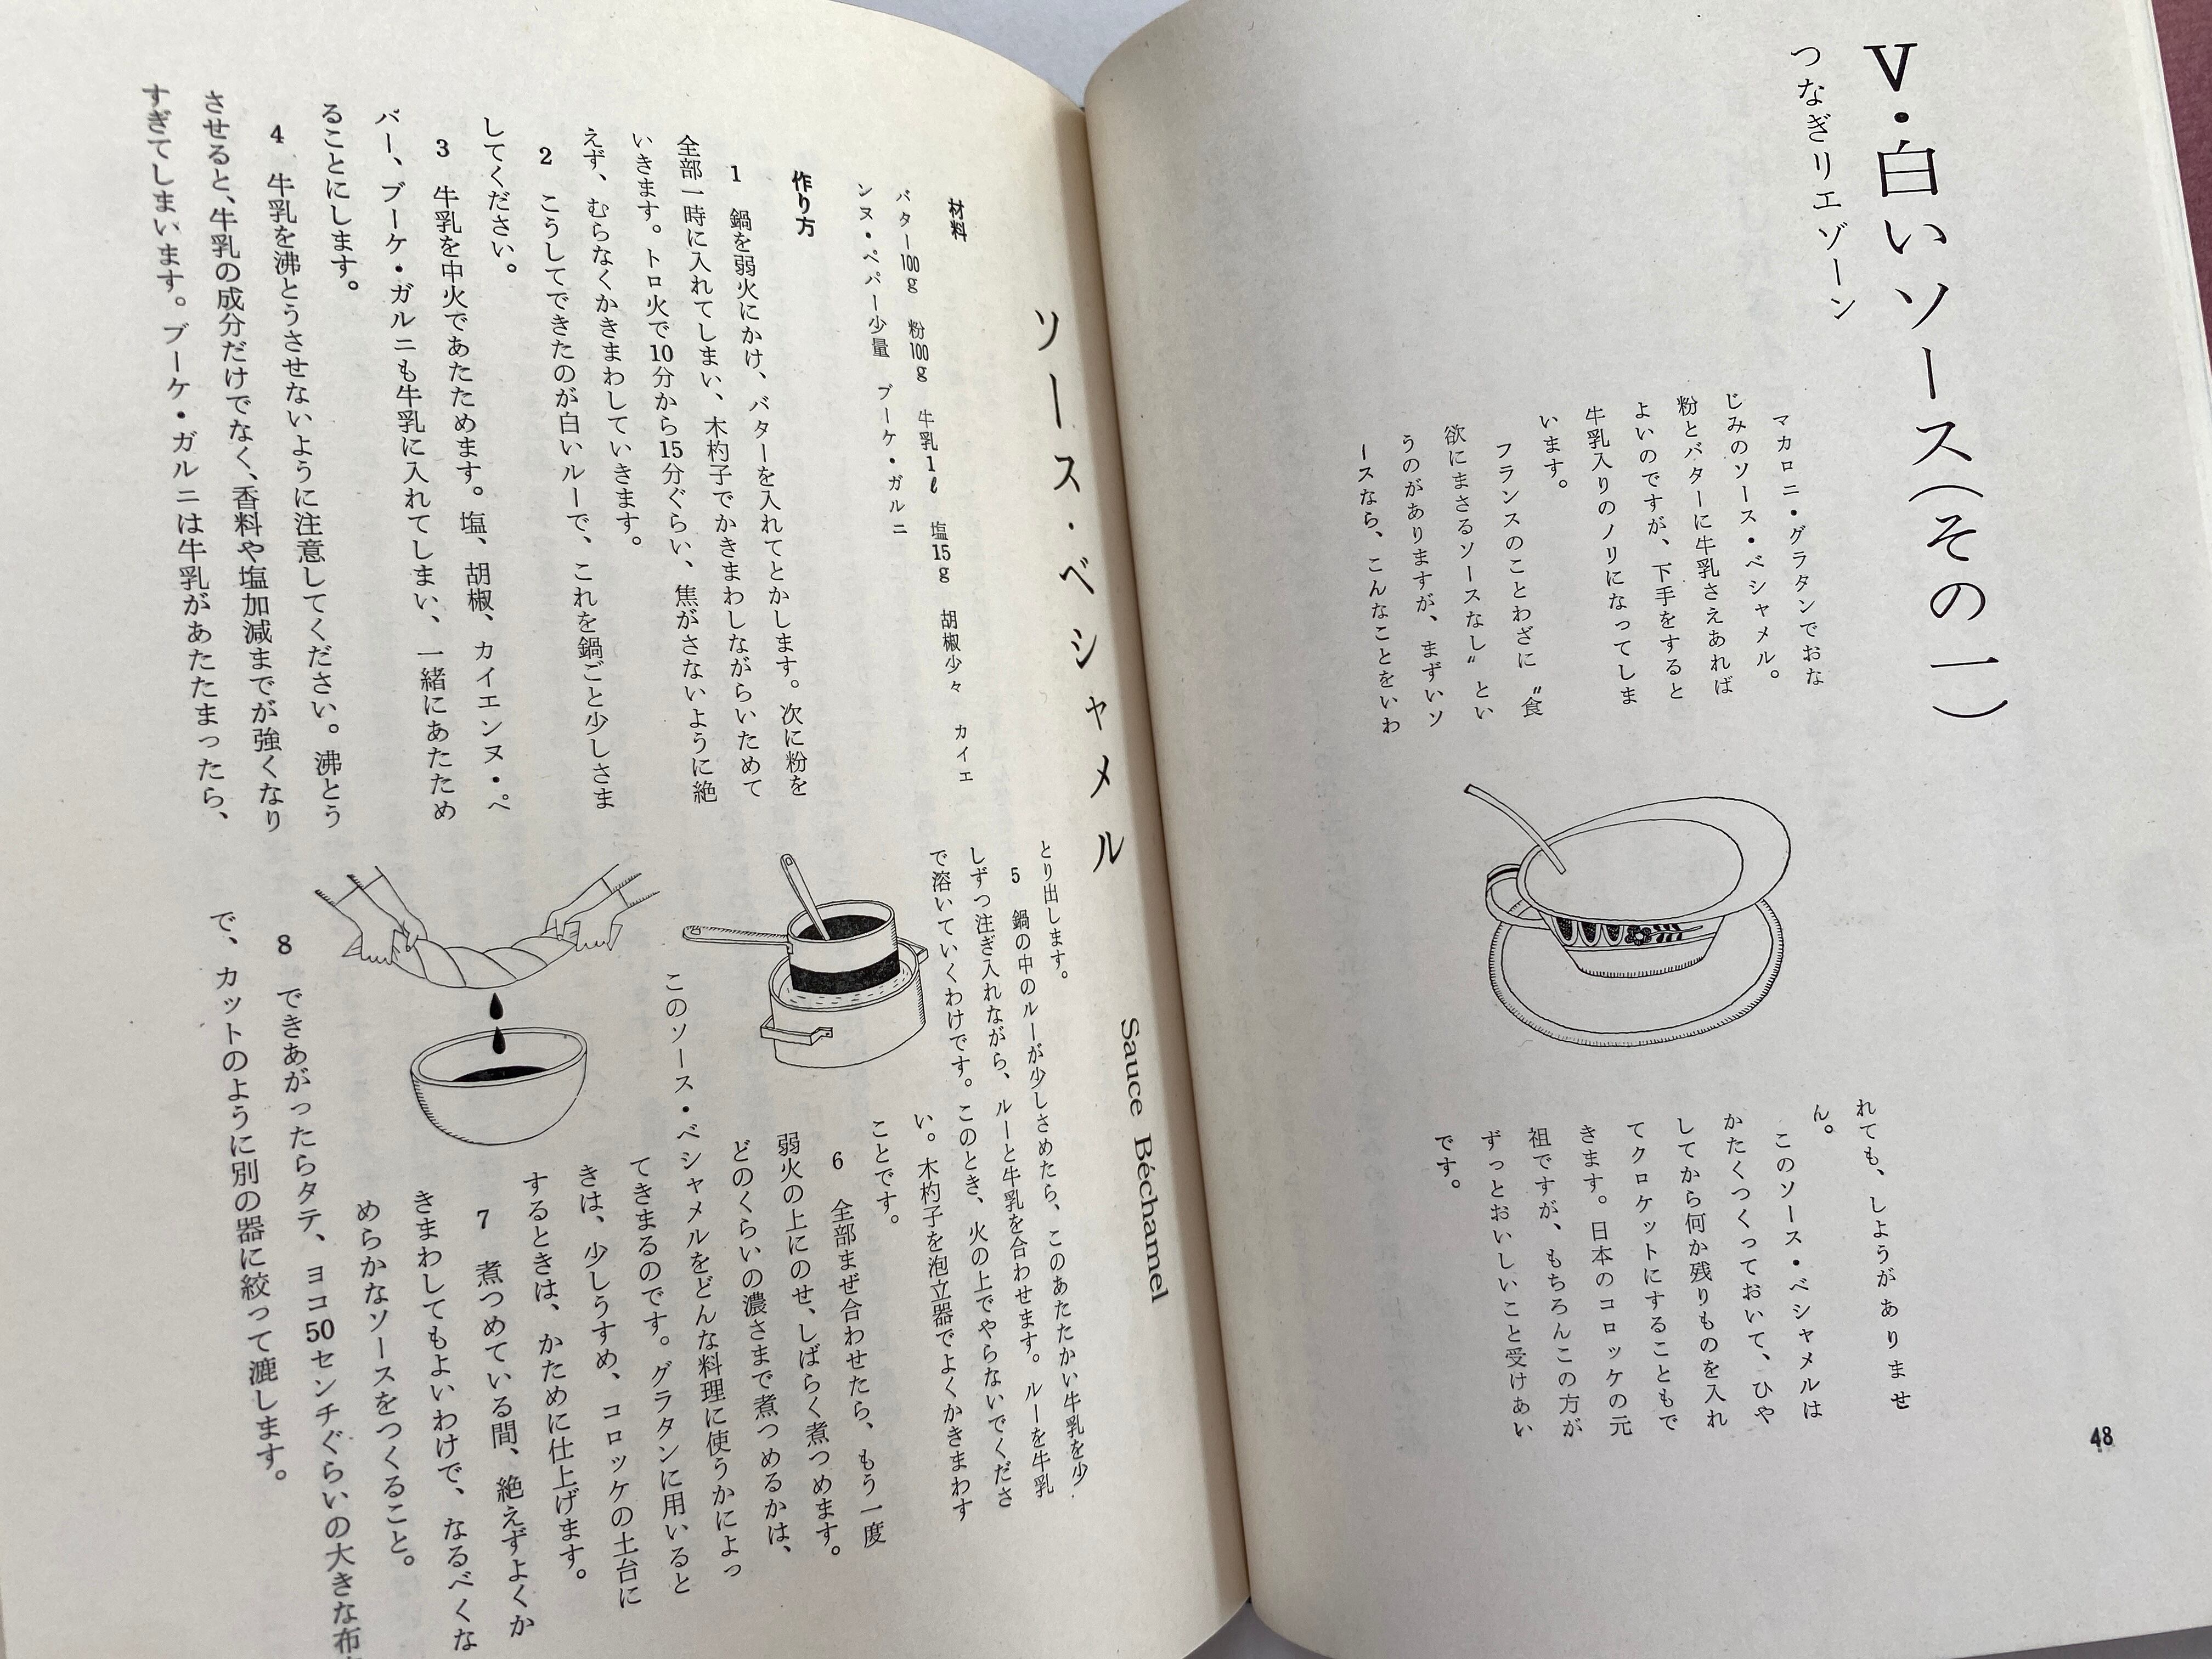 V・白いソース(その一)
つなぎリエゾーン
マカロニ・グラタンでおな
じみのソース・ベシャメル。
粉とバターに牛乳さえあれば
よいのですが、下手をすると
牛乳入りのノリになってしま
います。
フランスのことわざに〝食
欲にまさるソースなし〟とい
うのがありますが、まずいソ
ースなら、こんなことをいわ
れても、しようがありませ
ん。
このソース・ベシャメルは
かたくつくっておいて、ひや
してから何か残りものを入れ
てクロケットにすることもで
きます。日本のコロッケの元
祖ですが、もちろんこの方が
ずっとおいしいこと受けあい
です。
48
ソース・ベシャメル
Sauce Béchamel
材料
バター100g 粉100g 牛乳1ℓ 塩15g 胡椒少々 カイエ
ンヌ・ペパー少量 ブーケ・ガルニ
作り方
1 鍋を弱火にかけ、バターを入れてとかします。次に粉を
全部一時に入れてしまい、木杓子でかきまわしながらいためて
いきます。トロ火で10分から15分ぐらい、焦がさないように絶
えず、むらなくかきまわしていきます。
2 こうしてできたのが白いルーで、これを鍋ごと少しさま
してください。
3 牛乳を中火であたためます。塩、胡椒、カイエンヌ・ペ
パー、ブーケ・ガルニも牛乳に入れてしまい、一緒にあたため
ることにします。
4 牛乳を沸とうさせないように注意してください。沸とう
させると、牛乳の成分だけでなく、香料や塩加減までが強くなり
すぎてしまいます。ブーケ・ガルニは牛乳があたたまったら、
とり出します。
5 鍋の中のルーが少しさめたら、このあたたかい牛乳を少
しずつ注ぎ入れながら、ルーと牛乳を合わせます。ルーを牛乳
で溶いていくわけです。このとき、火の上でやらないでくださ
い。木杓子を泡立器でよくかきまわす
ことです。
6 全部まぜ合わせたら、もう一度
弱火の上にのせ、しばらく煮つめます。
どのくらいの濃さまで煮つめるかは、
このソース・ベシャメルをどんな料理に使うかによっ
てきまるのです。グラタンに用いると
きは、少しうすめ、コロッケの土台に
するときは、かために仕上げます。
7 煮つめている間、絶えずよくか
きまわしてもよいわけで、なるべくな
めらかなソースをつくること。
8 できあがったらタテ、ヨコ50センチぐらいの大きな布
で、カットのように別の器に絞って漉します。